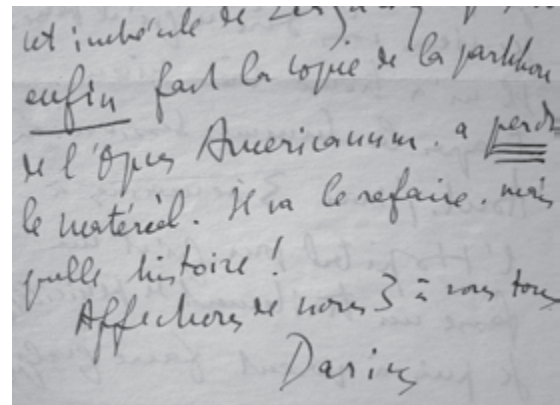 cet imbécile de
enfin fait la copie de la partition
de l'Opus Americanum. a perdu
le matériel. Il va le refaire. mais
quelle histoire!
Affections de nous 3 à vous tous
Darius